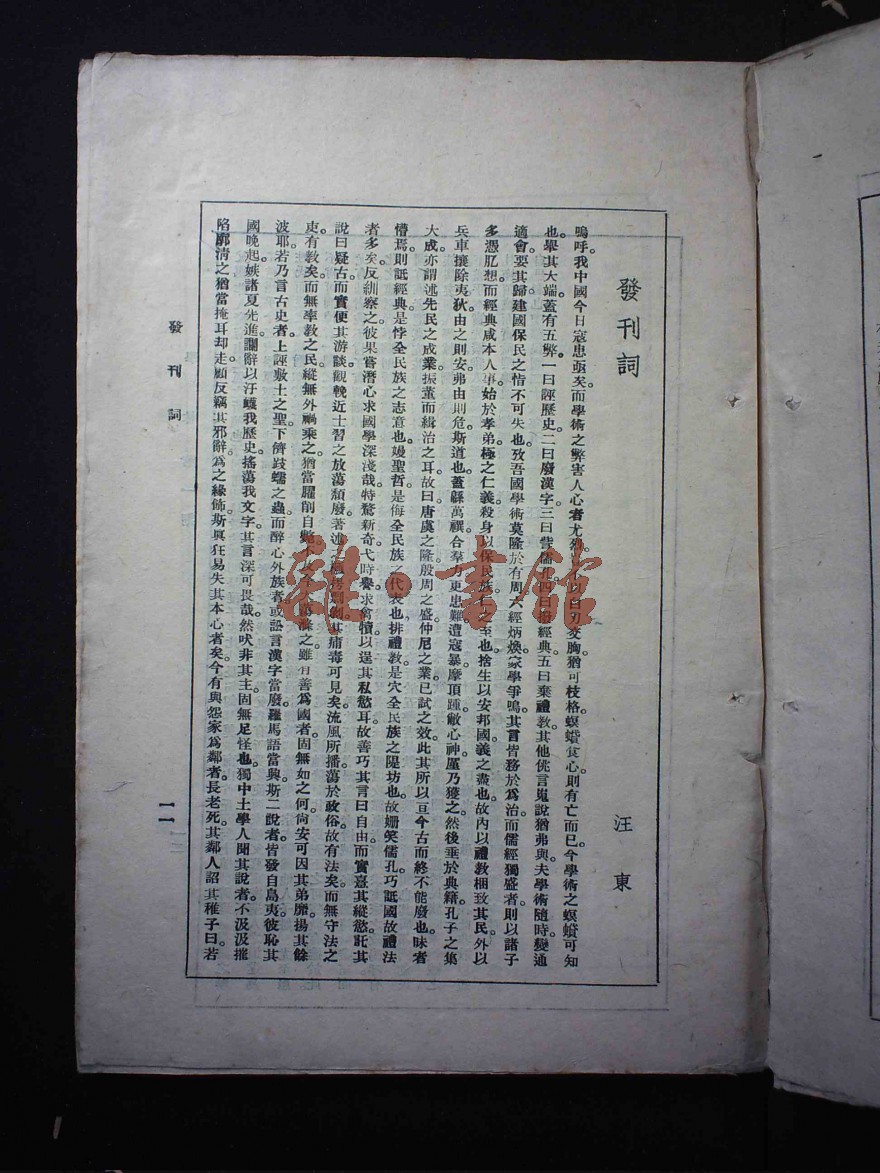 發刊詞
汪東
嗚呼。我中國今日寇患亟矣。而學術之弊害人心者尤
以白刃交胸。猶可枝格。螟螣食心。則有亡而已。今學術之螟螣可知
也。舉其大端。蓋有五弊。一曰誣歷史。二曰廢漢字。三曰訾儒孔。四曰撥經典。五曰棄禮教。其他佹言嵬說。猶弗與。夫學術隨時變通
適會。要其歸建國保民之恉不可失也。攷吾國學術。莫隆於有周。六經炳煥。家學爭鳴。其言皆務於為治。而儒經獨盛者。則以諸子
多憑肊想。而經典咸本人事。始於孝弟。極之仁義。殺身以保民族。仁之至也。捨生以安邦國。義之盡也。故內以禮教梱致其民。外以
兵車攘除夷狄。由之則安。弗由則危。斯道也。蓋繇萬禩。合羣力。更患難。遭寇暴。摩頂踵。敝心神。厪乃獲之。然後垂於典籍。孔子之集
大成。亦謂述先民之成業。振董而緝治之耳。故曰唐虞之隆。殷周之盛。仲尼之業。已試之效。此其所以亘今古而終不能廢也。昧者
懵焉。則詆經典。是悖全民族之志意也。嫚聖哲。是侮全民族之代表也。排禮教。是穴全民族之隄坊也。故姍笑儒孔。巧詆國故禮法
者多矣。反紃察之。彼果嘗潛心求國學深淺哉。特騖新奇。弋時譽。求禽犢。以逞其私慾耳。故善巧其言曰自由。而實臺其縱慾。託其
說曰疑古。而實便其游談。觀輓近士習之放蕩頹廢。著述
其痡毒可見矣。流風所播。蕩於政俗。故有法矣。而無守法之
吏。有教矣。而無率教之民。縱無外禍乘之。猶當朘削自斃。
蕩滌之。雖有善為國者。固無如之何。尙安可因其弟靡。揚其餘
波耶。若乃言古史者。上誣敷土之聖。下儕歧蠕之蟲。而醉心外族者。或訟言漢字當廢。羅馬語當興。斯二說者。皆發自島夷。彼恥其
國晚起。嫉諸夏先進。讕辭以汙衊我歷史。搖蕩我文字。其言深可畏哉。然吠非其主。固無足怪也。獨中土學人聞其說者。不汲汲摧
陷廓清之。猶當掩耳却走。顧反竊其邪辭為之緣飾。斯與狂易失其本心者矣。今有與怨家為鄰者。長老死。其鄰人詔其稚子曰。若
發刊詞
一一
雜·書館